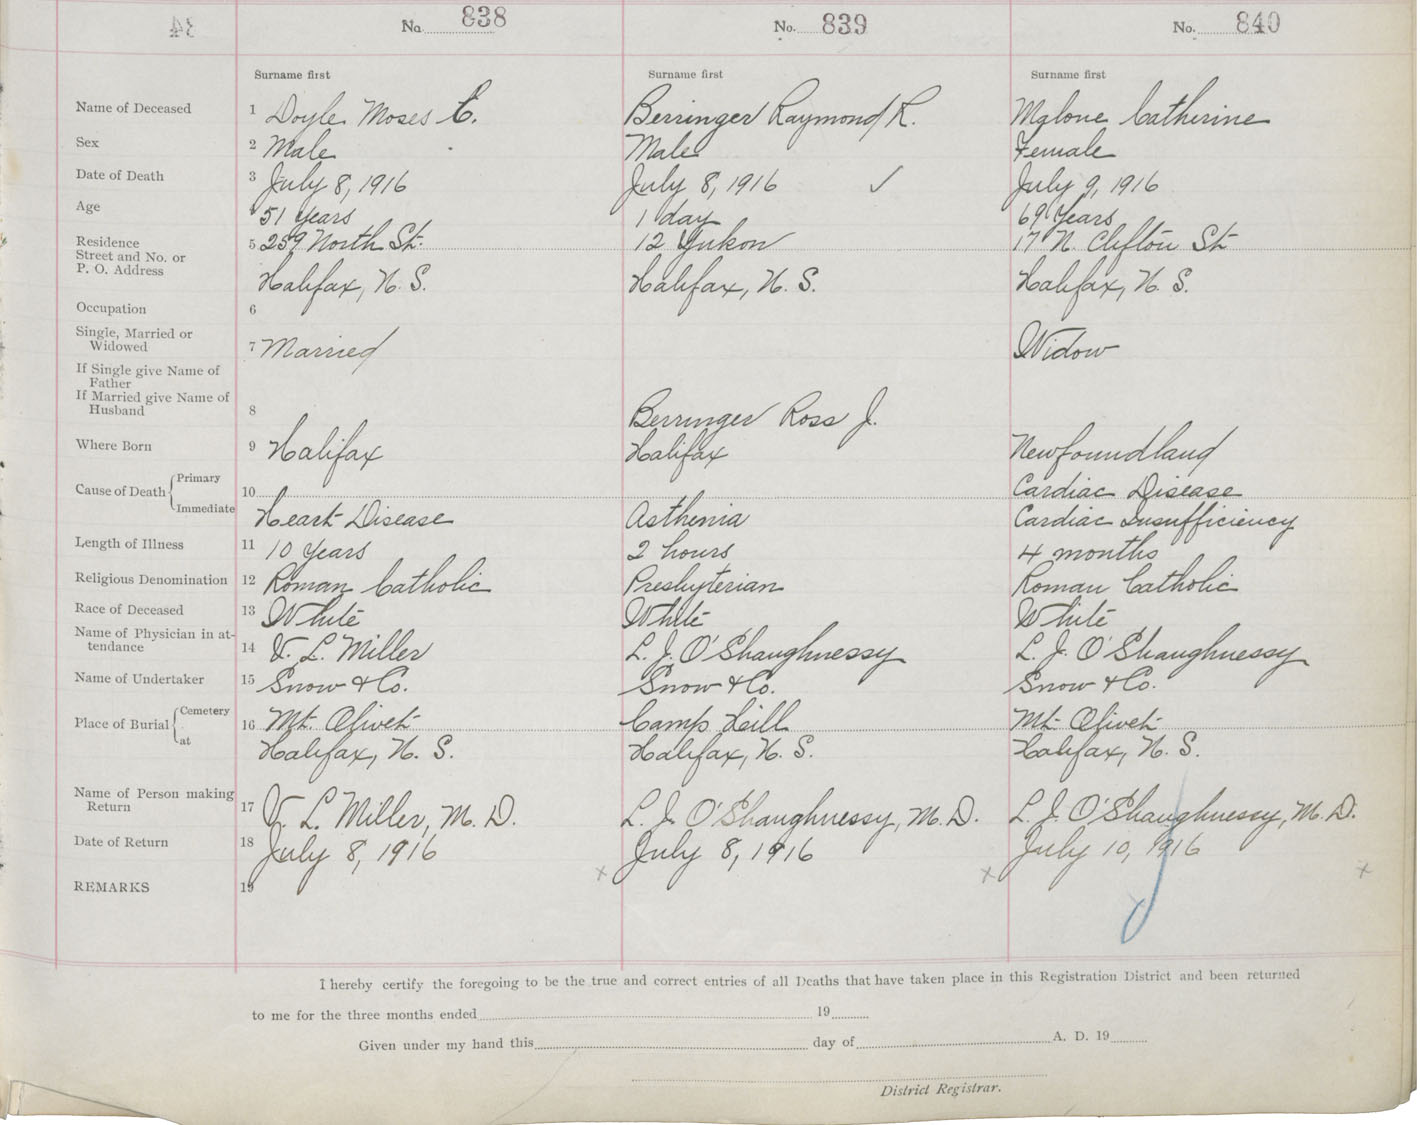 34
No. 838 No. 839 No. 840
Surname first Surname first Surname first
Name of Deceased 1 Doyle Moses C. Berringer Raymond R. Malone Catherine
Sex 2 Male Male Female
Date of Death 3 July 8, 1916 July 8, 1916 ✓ July 9, 1916
Age 4 51 Years 1 day 69 Years
Residence 5 259 North St. 12 Yukon 17 N. Clifton St
Street and No. or
P. O. Address Halifax, N. S. Halifax, N. S. Halifax, N. S.
Occupation 6
Single, Married or
Widowed 7 Married Widow
If Single give Name of
Father
If Married give Name of
Husband 8 Berringer Ross J.
Where Born 9 Halifax Halifax Newfoundland
Cause of Death Primary 10 Cardiac Disease
Immediate Heart Disease Asthenia Cardiac Insufficiency
Length of Illness 11 10 Years 2 hours 4 months
Religious Denomination 12 Roman Catholic Presbyterian Roman Catholic
Race of Deceased 13 White White White
Name of Physician in at-
tendance 14 V. L. Miller L. J. O'Shaughnessy L. J. O'Shaughnessy
Name of Undertaker 15 Snow & Co. Snow & Co. Snow & Co.
Place of Burial Cemetery 16 Mt. Olivet Camp Hill Mt. Olivet
at Halifax, N. S. Halifax, N. S. Halifax, N. S.
Name of Person making
Return 17 V. L. Miller, M. D. L. J. O'Shaughnessy, M. D. L. J. O'Shaughnessy, M. D.
Date of Return 18 July 8, 1916 July 8, 1916 July 10, 1916
REMARKS 19 x x x
I hereby certify the foregoing to be the true and correct entries of all Deaths that have taken place in this Registration District and been returned
to me for the three months ended 19
Given under my hand this day of A. D. 19
District Registrar.